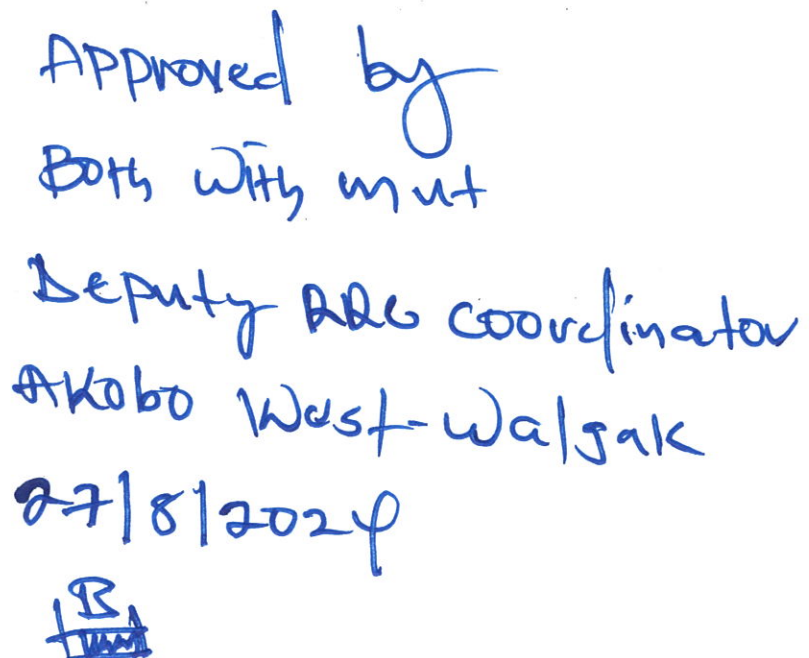 Approved by
Both with mut
Deputy RRC Coordinator
Akobo West-Walgak
27/8/2024